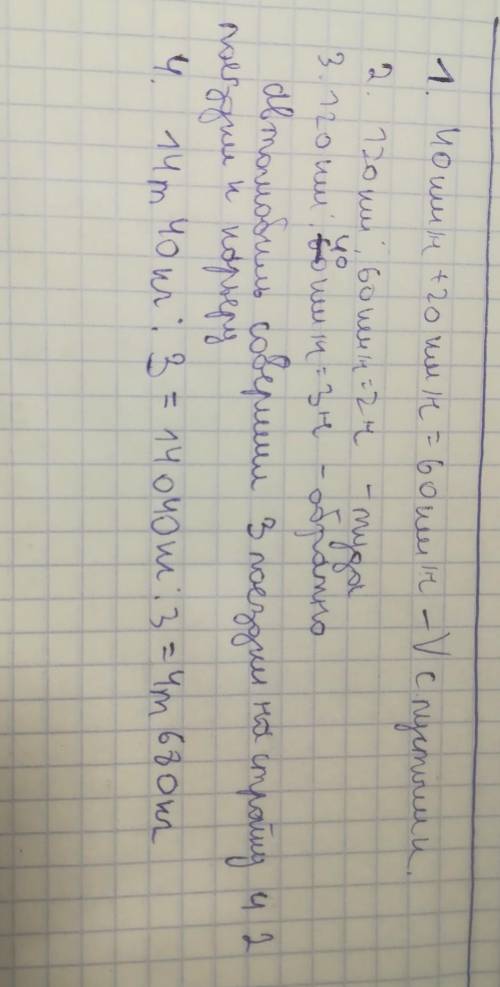 1. 40 км/ч + 20 км/ч = 60 км/ч - V с пустыми.
2. 120 км : 60 км/ч = 2ч - туда
3. 120 км : 40 км/ч = 3ч - обратно
Автомобиль совершил 3 поездки на стройку и 2
поездки к карьеру
4. 14т 40кг : 3 = 14040кг : 3 = 4т 680кг